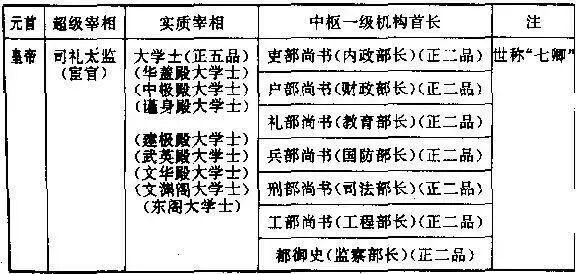 元首 超级宰相 实质宰相 中枢一级机构首长 注
皇帝 司礼太监 大学士(正五品) 吏部尚书(内政部长)(正二品) 世称“七卿”
(宦官) (华盖殿大学士)
(中极殿大学士) 户部尚书(财政部长)(正二品)
(谨身殿大学士)
礼部尚书(教育部长)(正二品)
(建极殿大学士)
(武英殿大学士) 兵部尚书(国防部长)(正二品)
(文华殿大学士)
(文渊阁大学士) 刑部尚书(司法部长)(正二品)
(东阁大学士)
工部尚书(工程部长)(正二品)
都御史(监察部长)(正二品)